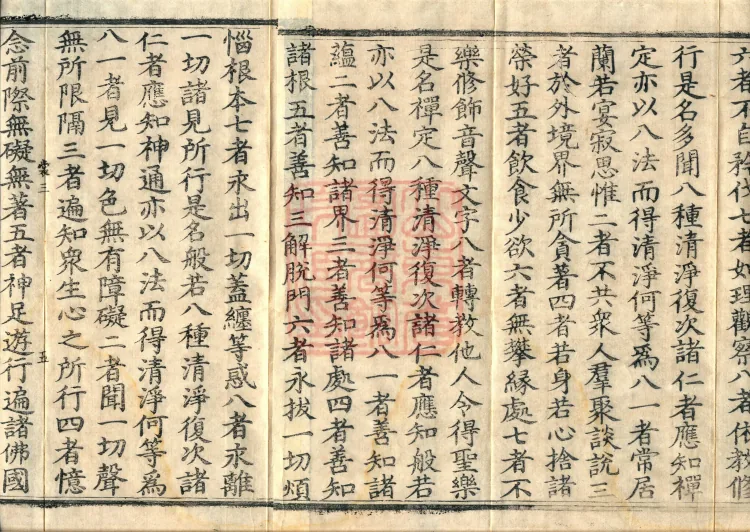 六者不自矜伐七者如理觀察八者依教修
行是名多聞八種清淨復次諸仁者應知禪
定亦以八法而得清淨何等爲八一者常居
蘭若宴寂思惟二者不共衆人羣聚談說三
者於外境界無所貪著四者若身若心捨諸
榮好五者飲食少欲六者無攀緣處七者不
樂修飾音聲文字八者轉教他人令得聖樂
是名禪定八種清淨復次諸仁者應知般若
亦以八法而得清淨何等爲八一者善知諸
蘊二者善知諸界三者善知諸處四者善知
諸根五者善知三解脫門六者永拔一切煩
惱根本七者永出一切蓋纏等惑八者永離
一切諸見所行是名般若八種清淨復次諸
仁者應知神通亦以八法而得清淨何等為
八一者見一切色無有障礙二者聞一切聲
無所限隔三者遍知衆生心之所行四者憶
念前際無礙無著五者神足遊行遍諸佛國
三 五